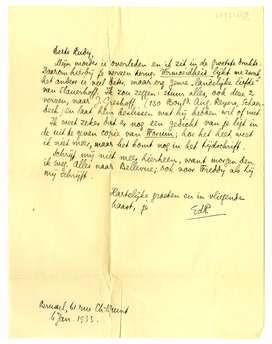 Beste Rudy,
Mijn moeder is overleden en ik zit in de grootste drukte.
Daarom hierbij je verzen terug. Vermoeidheid lijkt me zwak,
het andere is veel beter, maar erg genre "landelijke liefde"
van Slauerhoff. Ik zou zeggen: stuur alles, ook deze 2
verzen, naar J. Greshoff (130 Boul. Aug. Reyers, Schaer-
beek) en laat hem beslissen wat hij hebben wil of niet.
Ik weet zeker dat er nog een gedicht van je ligt in
de uit te geven copie van Forum; hoe het heet weet
ik niet meer, maar het komt nog in het tijdschrift.
Schrijf mij niet meer hierheen, want morgen ben
ik weg. Alles naar Bellevue; ook voor Freddy als hij
mij schrijft.
Hartelijke groeten en in vliegende
haast, je
EdP.
Brussel, 61 rue Ch.
6 Jan. 1933.